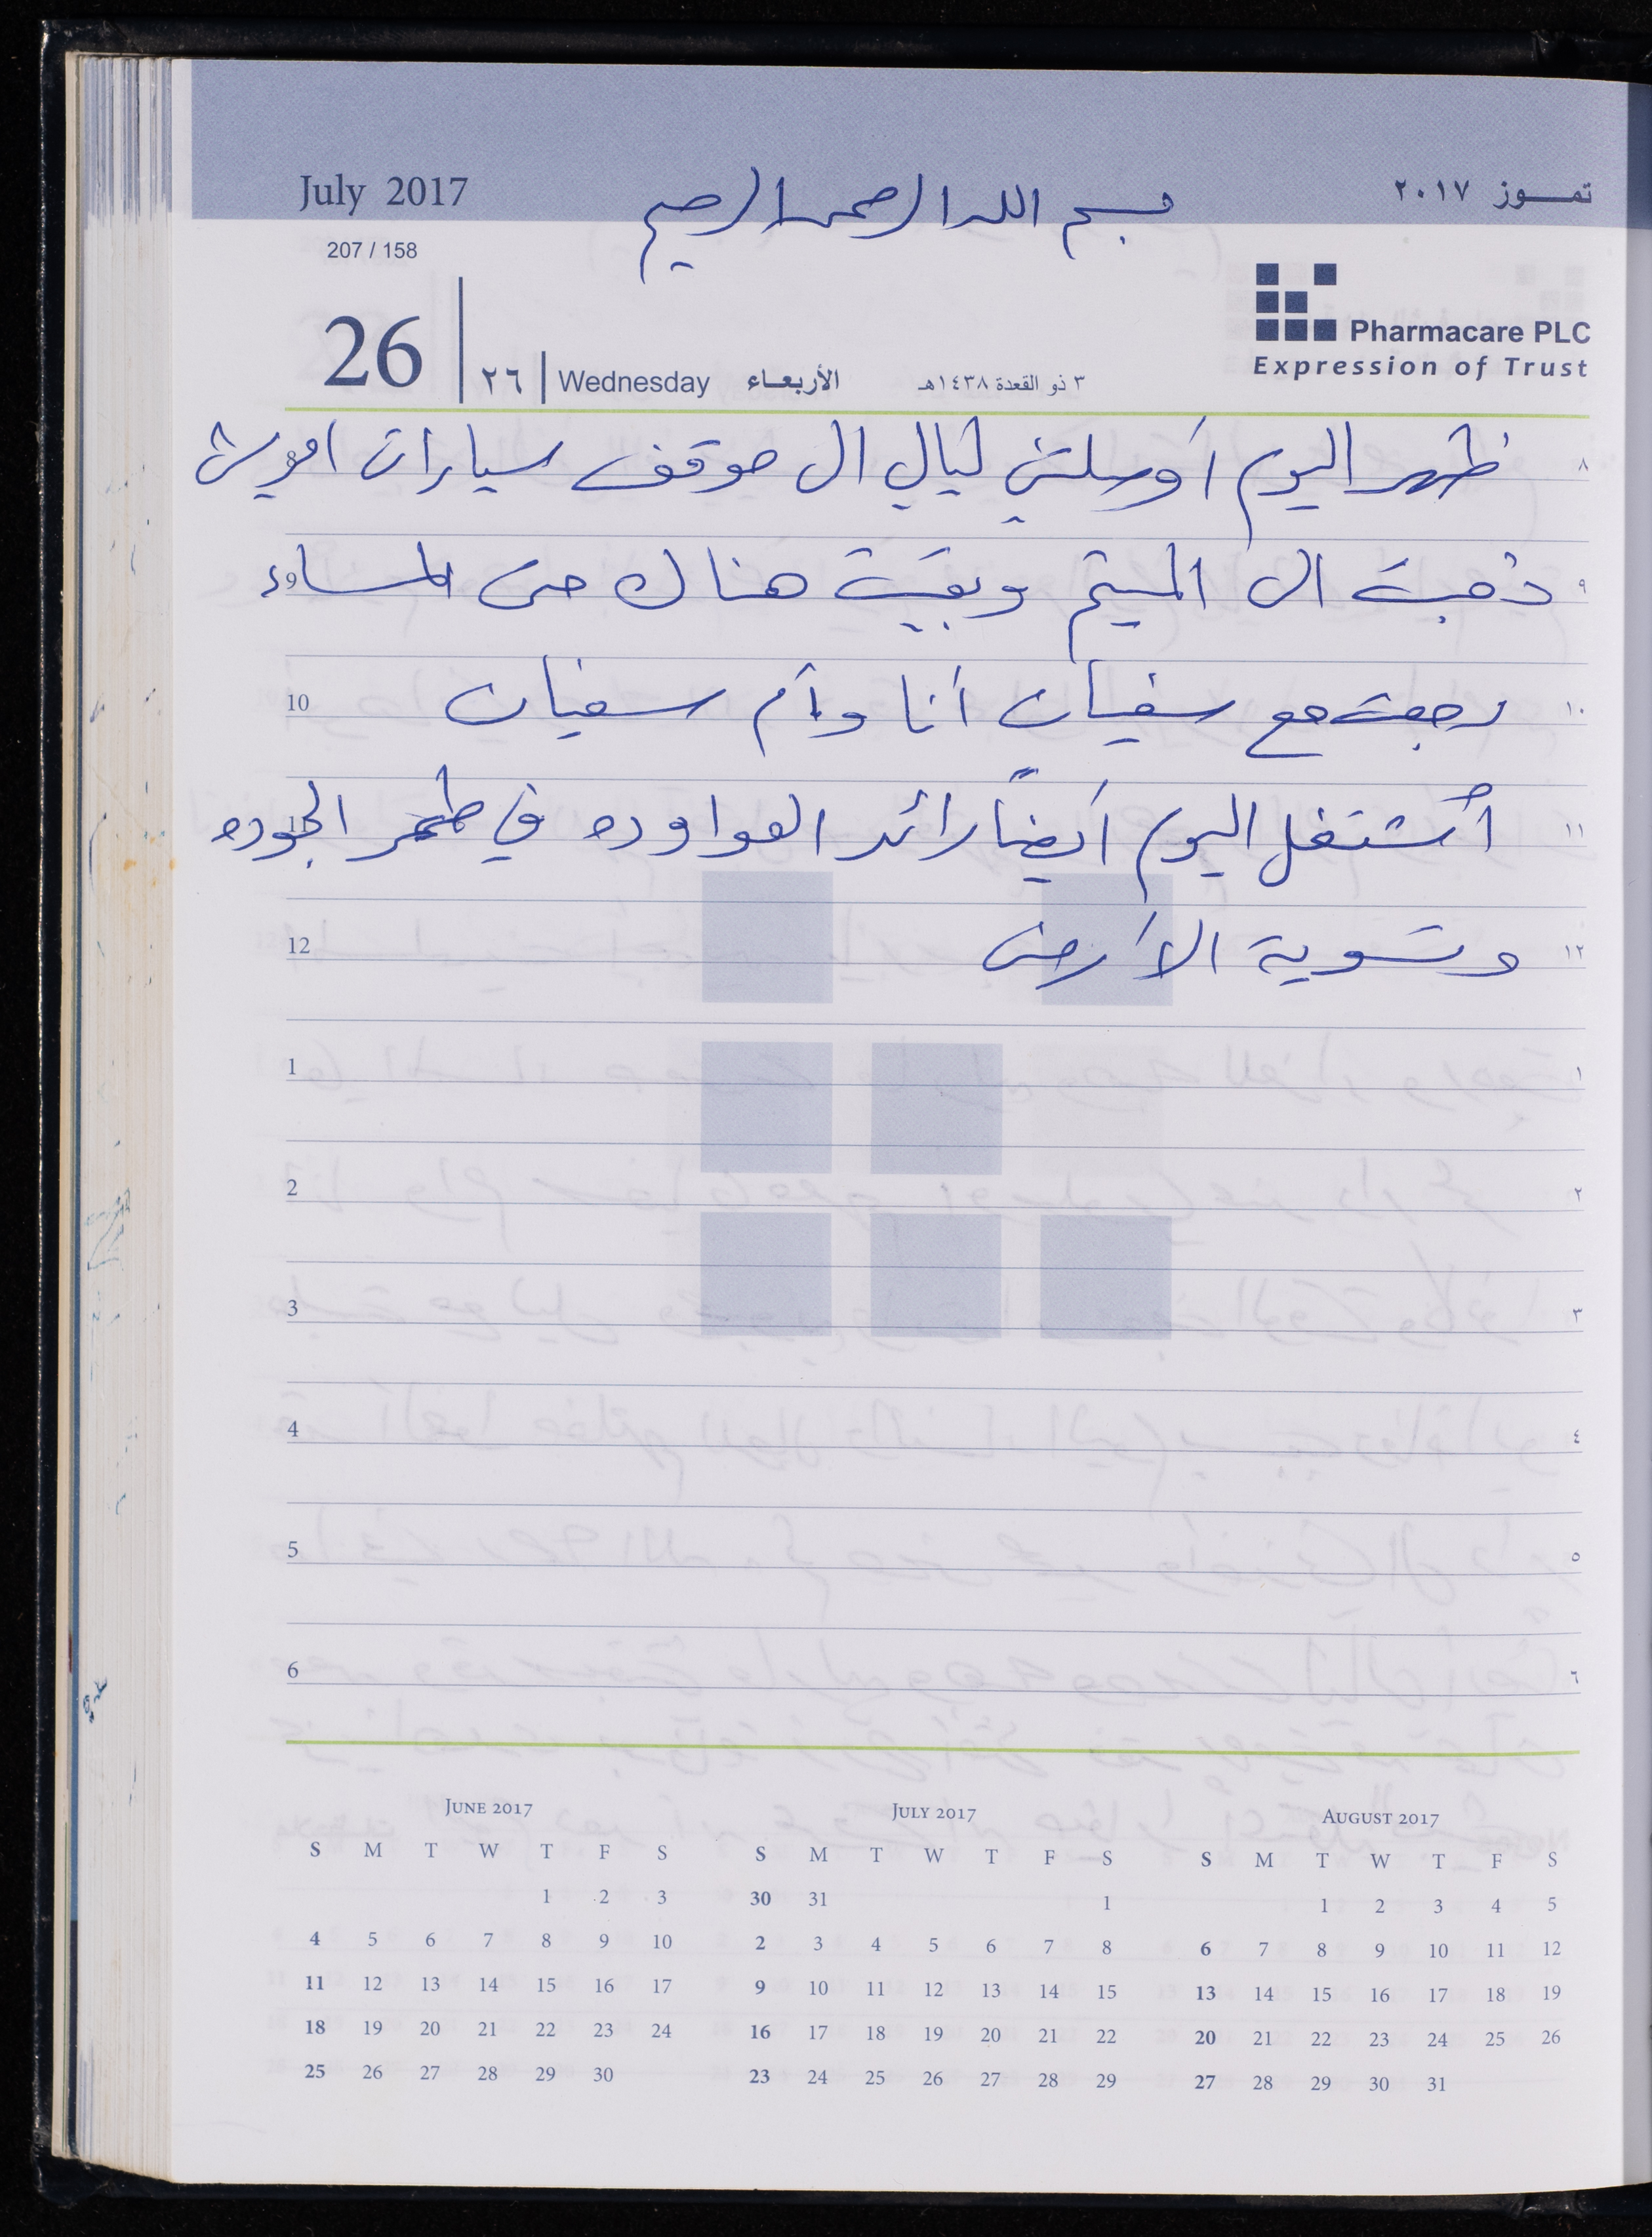 July 2017
بسم الله الرحمن الرحيم
تمــوز ٢٠١٧
207 / 158
26
٢٦
Wednesday
الأربعـاء
٣ ذو القعدة ١٤٣٨هـ
Pharmacare PLC
Expression of Trust
ظهر اليوم أوصلتني ليالي الى موقف سيارات
8 ٨
ذهبت الى الميتم وبقيت هناك حتى المساء
9 ٩
رجعت مع سفيان أنا وأم سفيان
10 ١٠
أشتغل اليوم أيضاً رائد العواوده في طمر الجوره
11 ١١
وتسوية الأرض
12 ١٢
1 ١
2 ٢
3 ٣
4 ٤
5 ٥
6 ٦
JUNE 2017
S M T W T F S
1 2 3
4 5 6 7 8 9 10
11 12 13 14 15 16 17
18 19 20 21 22 23 24
25 26 27 28 29 30
JULY 2017
S M T W T F S
30 31 1
2 3 4 5 6 7 8
9 10 11 12 13 14 15
16 17 18 19 20 21 22
23 24 25 26 27 28 29
AUGUST 2017
S M T W T F S
1 2 3 4 5
6 7 8 9 10 11 12
13 14 15 16 17 18 19
20 21 22 23 24 25 26
27 28 29 30 31